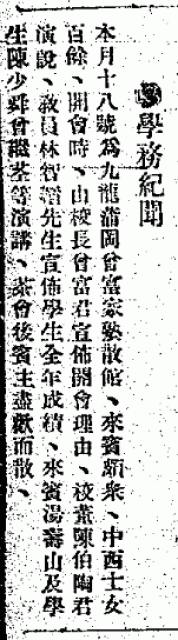 學務紀聞
本月十八號爲九龍蒲岡曾富家塾散館、來賓頗衆、中西士女
百餘、開會時、由校長曾富君宣佈開會理由、校董陳伯陶君
演說、敎員林智
先生宣佈學生全年成績、來賓湯壽山及學
生陳少
曾繼
等演講、茶會後賓主盡歡而散、